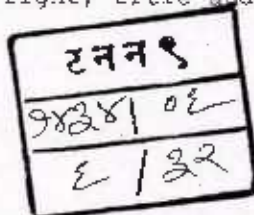 टनन९
१४३४/०६
६/३२